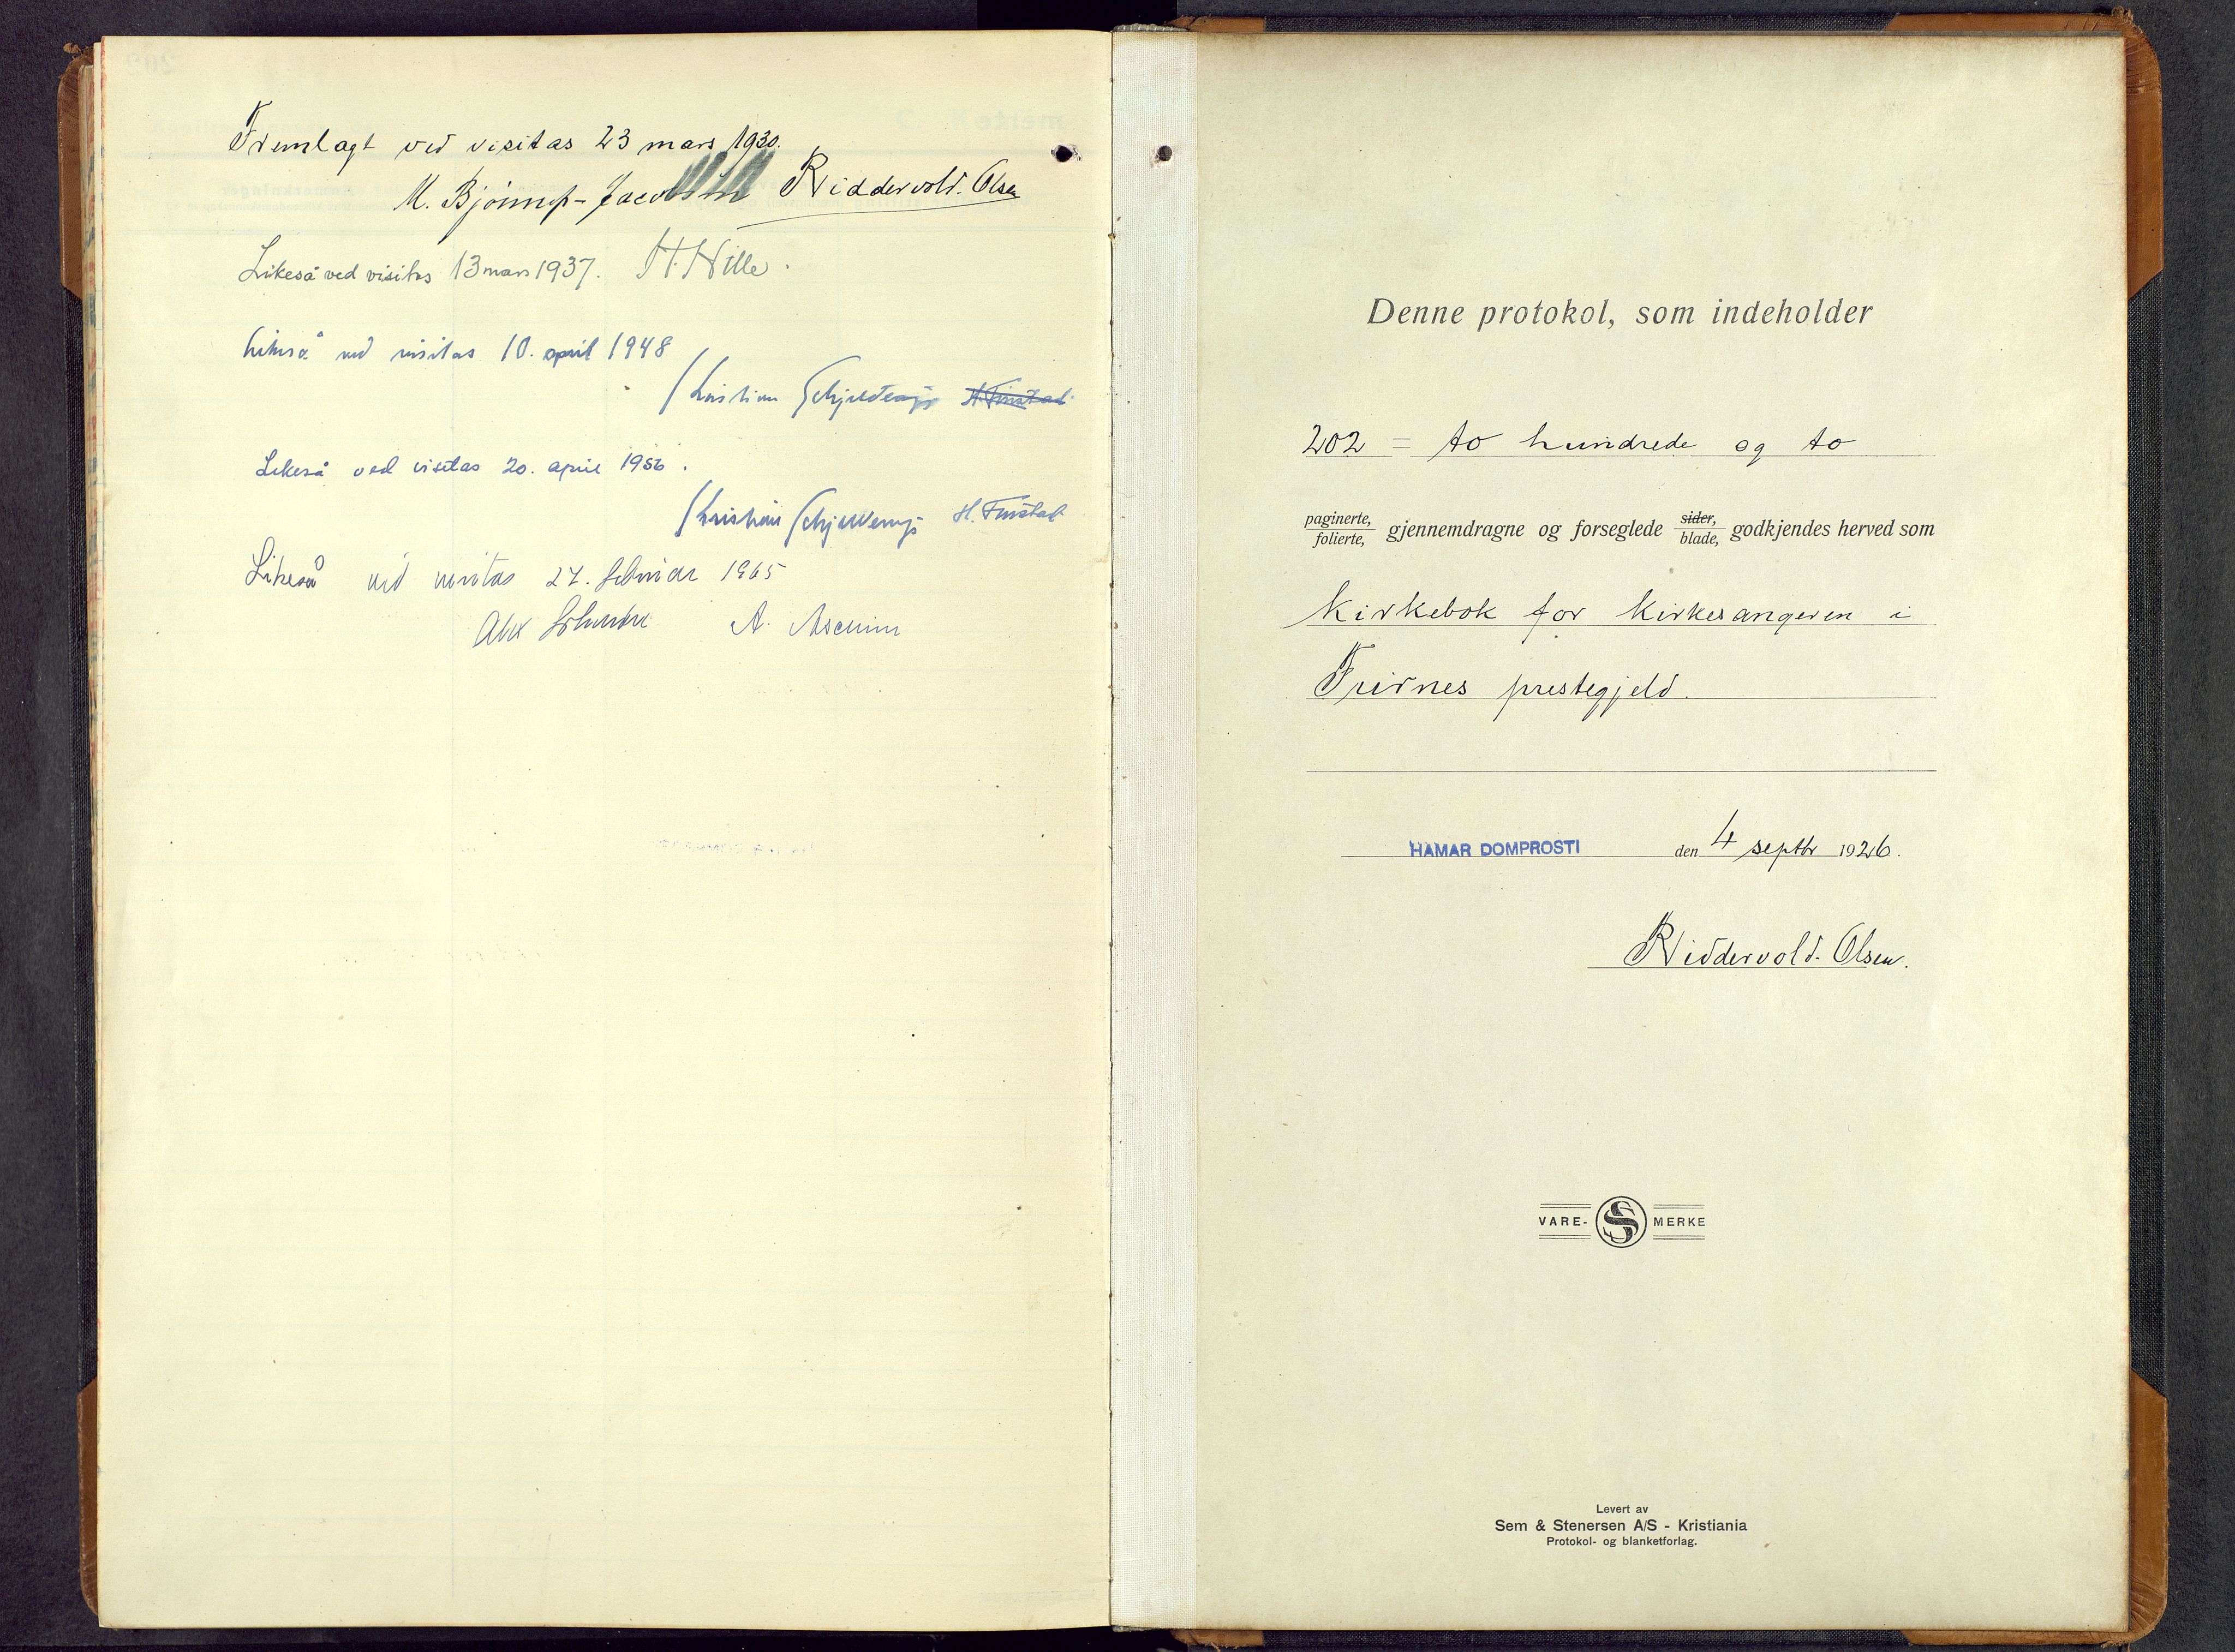 Fremlagt ved visitas 23 mars 1930.
M. Bjønnes-Jacobsen Riddervold-Olsen
Likeså ved visitas 13 mars 1937. H. Hille.
Likeså ved visitas 10. april 1948
Kristian Schjelderup H. Finstad
Likeså ved visitas 20. april 1956.
Kristian Schjelderup H. Finstad
Likeså ved visitas 27. februar 1965
Alex Johnson A.
Denne protokol, som indeholder
202 = to hundrede og to
paginerte, folierte, gjennemdragne og forseglede sider, blade, godkjendes herved som
kirkebok for kirkesangeren i
Furnes prestegjeld.
HAMAR DOMPROSTI den 4 septbr 1926.
Riddervold-Olsen.
VARE- S MERKE
Levert av
Sem & Stenersen A/S - Kristiania
Protokol- og blanketforlag.